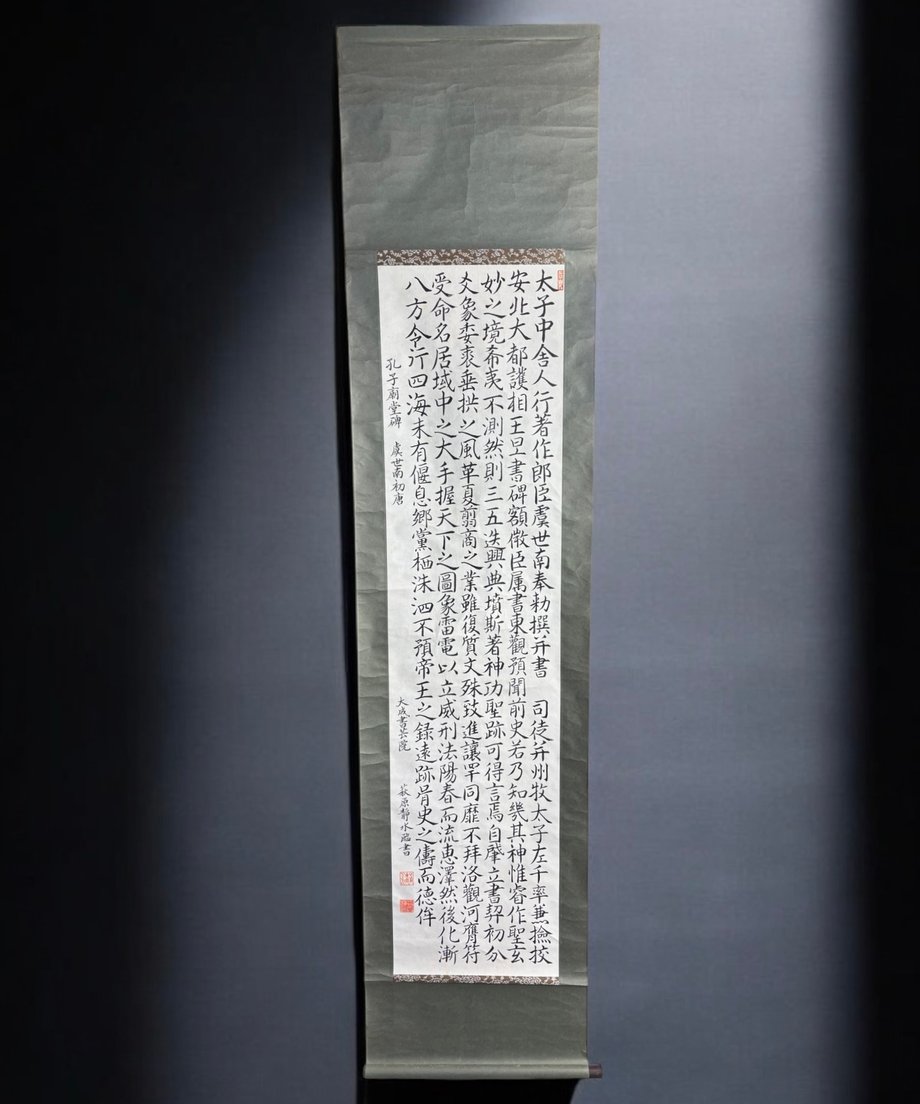 太子中舎人行著作郎臣虞世南奉勅撰并書 司徒并州牧太子左千率兼撿挍
安北大都護相王旦書碑額微臣属書東觀預聞前史若乃知幾其神惟睿作聖玄
妙之境希夷不測然則三五迭興典墳斯著神功聖跡可得言焉自肇立書契初分
爻象委裘垂拱之風革夏翦商之業雖復質文殊致進讓罕同靡不拜洛觀河膺符
受命名居域中之大手握天下之圖象雷電以立威刑法陽春而流恵澤然後化漸
八方令行四海未有偃息郷黨栖洙泗不預帝王之録遠跡胥史之儔而徳侔
孔子廟堂碑 虞世南初唐 大成書芸院 萩原靜水臨書